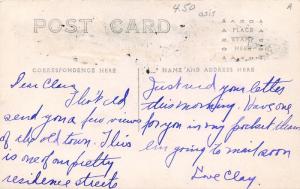 450
asis
A
POST CARD
PLACE
STAMP
HERE
CORRESPONDENCE HERE
NAME AND ADDRESS HERE
Dear Clay
Thot I'd
send you a few views
of the old town. This
is one of our pretty
residence streets
Just red your letter
this morning. Have one
for you in my pocket than
I'm going to mail soon
Love Clay.